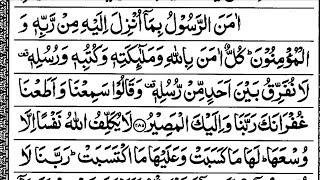 اٰمَنَ الرَّسُوۡلُ بِمَاۤ اُنۡزِلَ اِلَيۡهِ مِنۡ رَّبِّهٖ وَ
الۡمُؤۡمِنُوۡنَ ؕ كُلٌّ اٰمَنَ بِاللّٰهِ وَمَلٰٓئِكَتِهٖ وَكُتُبِهٖ وَرُسُلِهٖ ࣞ
لَا نُفَرِّقُ بَيۡنَ اَحَدٍ مِّنۡ رُّسُلِهٖ ࣞ وَقَالُوۡا سَمِعۡنَا وَاَطَعۡنَا
غُفۡرَانَكَ رَبَّنَا وَاِلَيۡكَ الۡمَصِيۡرُ ۝۲۸۵ لَا يُكَلِّفُ اللّٰهُ نَفۡسًا اِلَّا
وُسۡعَهَا ؕ لَهَا مَا كَسَبَتۡ وَعَلَيۡهَا مَا اكۡتَسَبَتۡ ؕ رَبَّنَا لَا